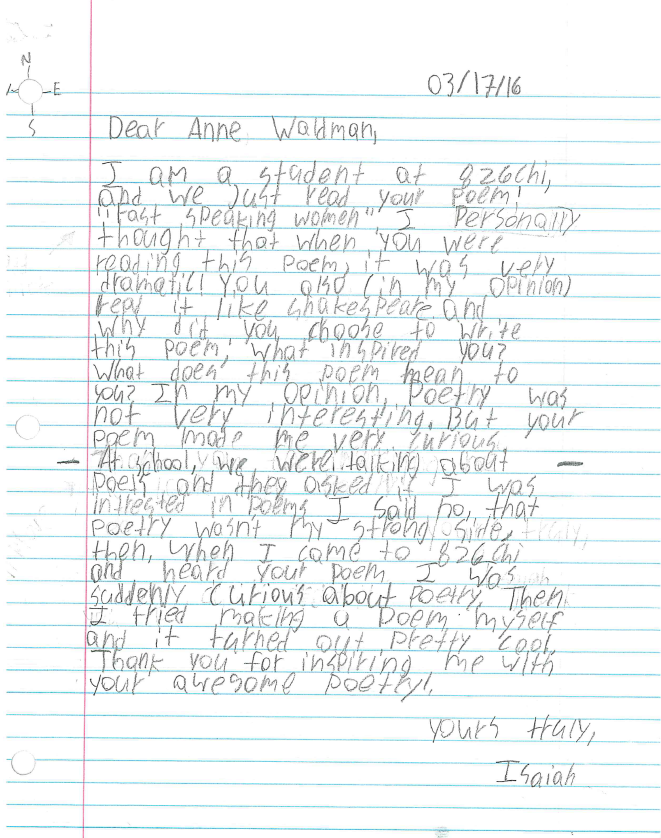 N
E
S
03/17/16
Dear Anne Waldman,
I am a student at 826chi,
and we Just read your poem!
"Fast speaking women" I Personally
thought that when you were
reading this poem, it was very
dramatic! You also (in my opinion)
read it like shakespeare and
why did you choose to write
this poem; what inspired you?
What does this poem mean to
you? In my opinion, Poetry was
not very interesting. But your
poem made me very curious.
At school, we were talking about
poets and they asked if I was
intrested in poems I said no, that
poetry wasn't my strong side,
then, when I came to 826chi
and heard your poem I was
suddenly curious about poetry. Then
I tried making a poem myself
and it turned out pretty cool.
Thank you for inspiring me with
your awesome poetry!.
yours truly,
Isaiah